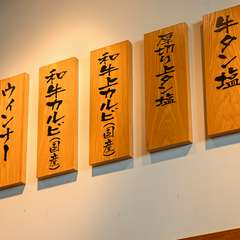 牛タン塩
厚切り上タン塩
和牛上カルビ(国産)
和牛カルビ(国産)
ウィンナー